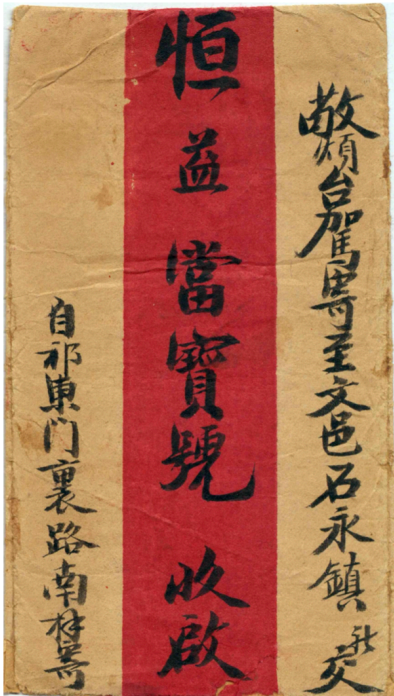 敬煩台駕寄至文邑石永鎮 交
恒益當寶號 收啟
自祁東門裏路南 寄